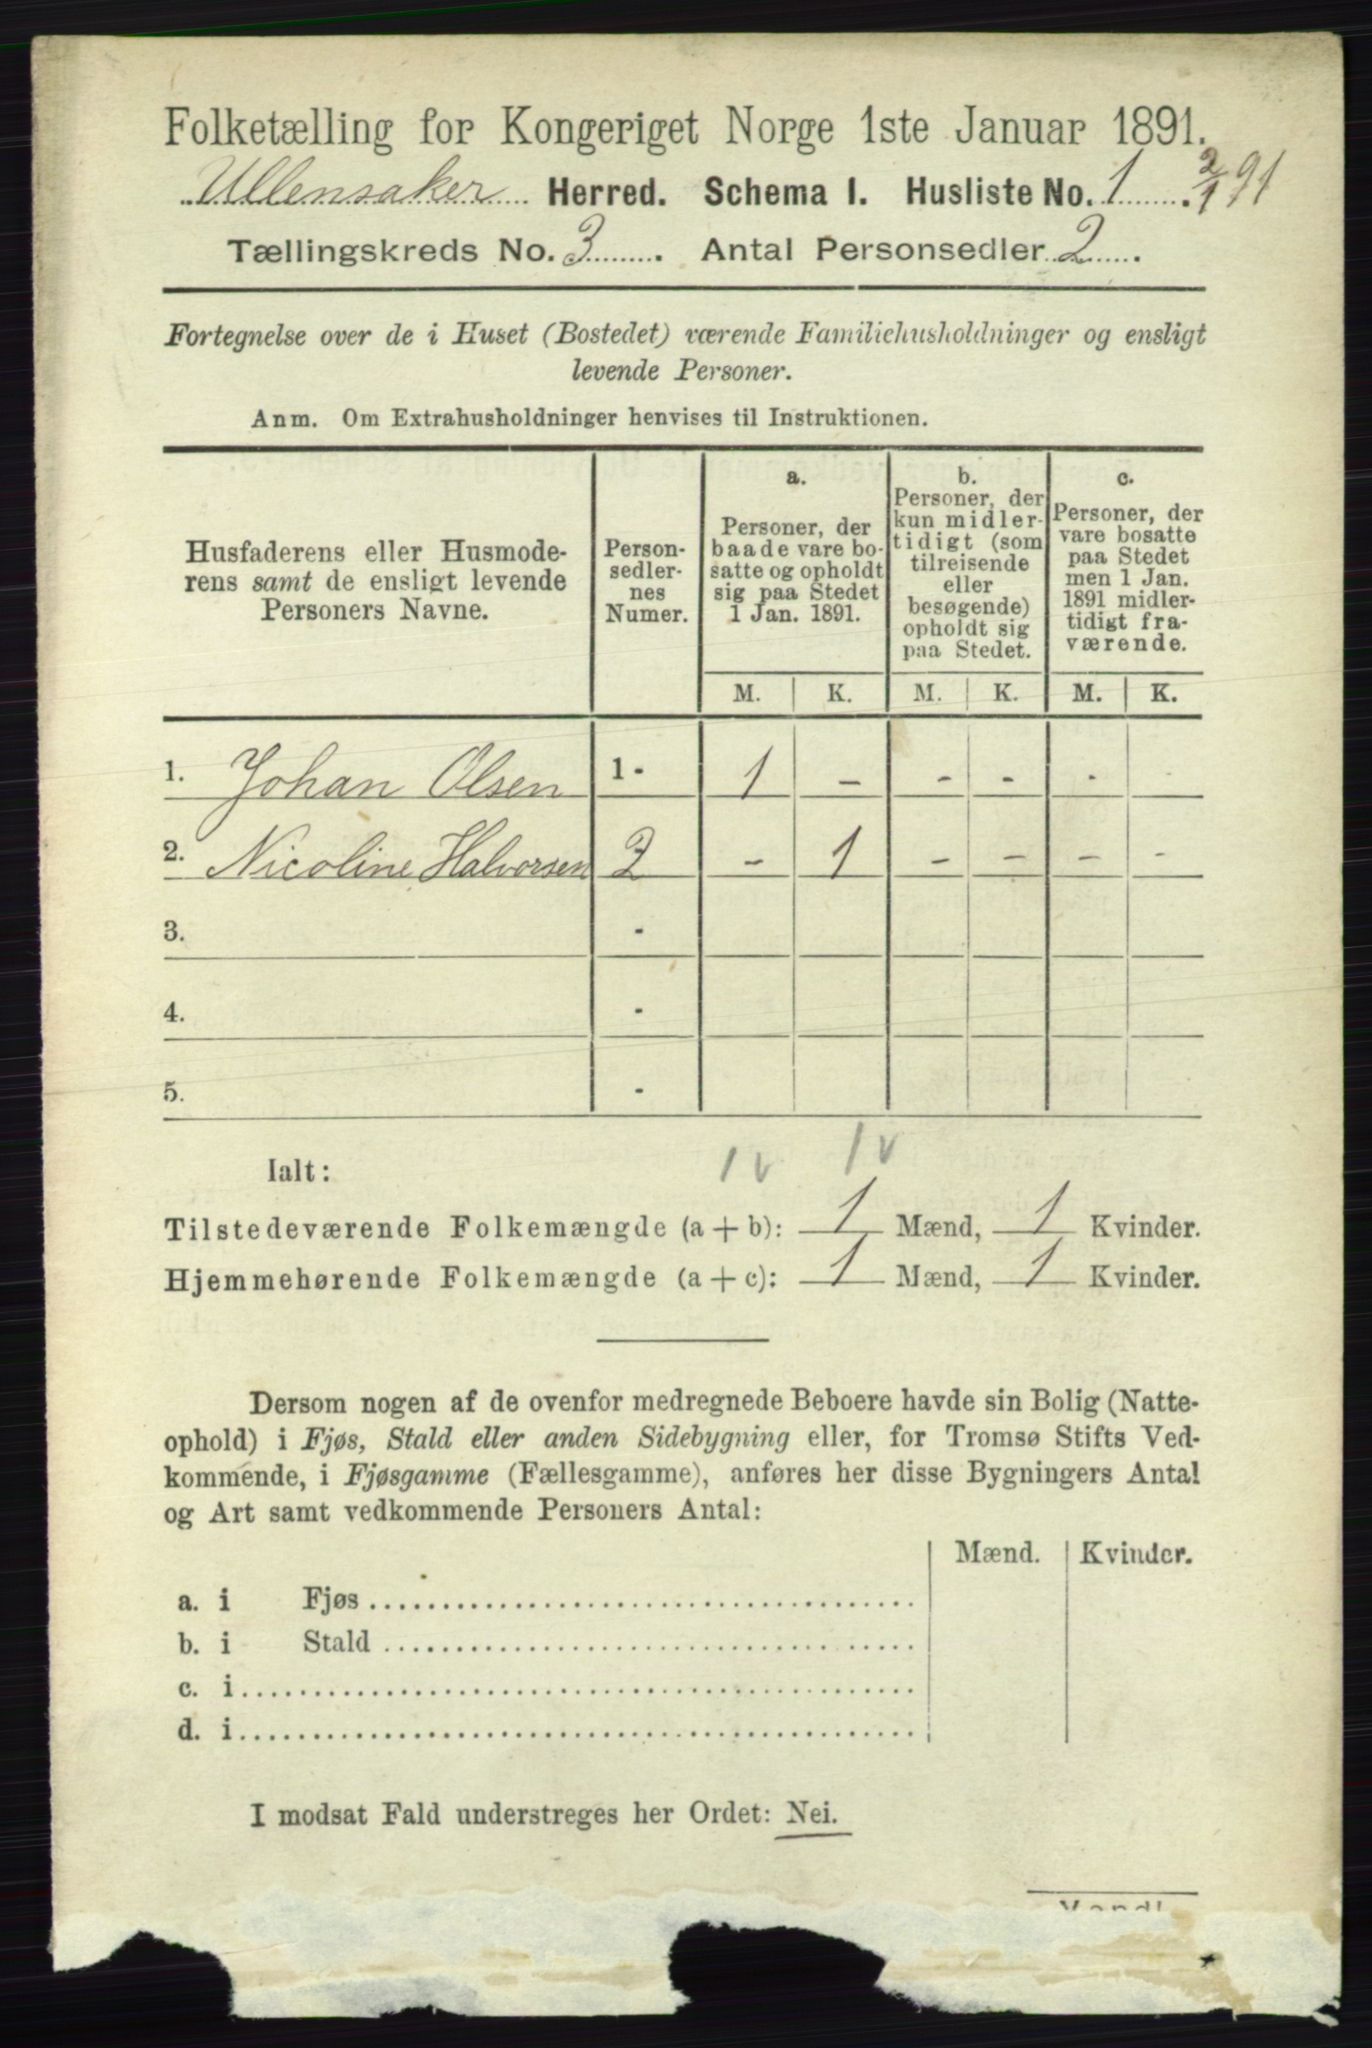 Folketælling for Kongeriget Norge 1ste Januar 1891.
Ullensaker Herred. Schema I. Husliste No. 1. 2/1 91
Tællingskreds No. 3. Antal Personsedler 2.
Fortegnelse over de i Huset (Bostedet) værende Familiehusholdninger og ensligt
levende Personer.
Anm. Om Extrahusholdninger henvises til Instruktionen.
Husfaderens eller Husmode-
rens samt de ensligt levende
Personers Navne.
Person-
sedler-
nes
Numer.
a.
Personer, der
baade vare bo-
satte og opholdt
sig paa Stedet
1 Jan. 1891.
b.
Personer, der
kun midler-
tidigt (som
tilreisende
eller
besøgende)
opholdt sig
paa Stedet.
c.
Personer, der
vare bosatte
paa Stedet
men 1 Jan.
1891 midler-
tidigt fra-
værende.
M. K. M. K. M. K.
1. Johan Olsen 1 - 1 - - - - -
2. Nicoline Halvorsen 2 - 1 - - - -
3. -
4. -
5. -
Ialt: 1 v 1 v
Tilstedeværende Folkemængde (a + b): 1 Mænd, 1 Kvinder.
Hjemmehørende Folkemængde (a + c): 1 Mænd, 1 Kvinder.
Dersom nogen af de ovenfor medregnede Beboere havde sin Bolig (Natte-
ophold) i Fjøs, Stald eller anden Sidebygning eller, for Tromsø Stifts Ved-
kommende, i Fjøsgamme (Fællesgamme), anføres her disse Bygningers Antal
og Art samt vedkommende Personers Antal:
Mænd. Kvinder.
a. i Fjøs
b. i Stald
c. i
d. i
I modsat Fald understreges her Ordet: Nei.